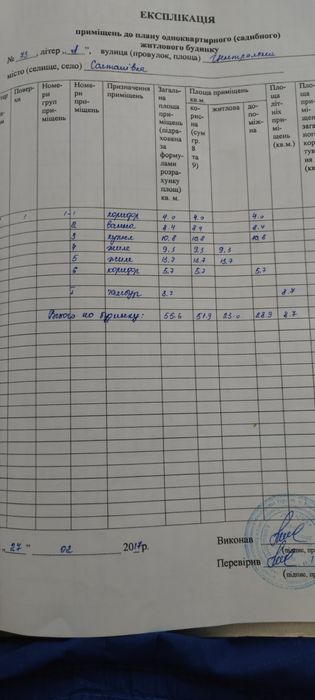 ЕКСПЛІКАЦІЯ
приміщень до плану одноквартирного (садибного)
житлового будинку
№ 73, літер „ А ", вулиця (провулок, площа) Центральна
місто (селище, село)
Повер-
хи
Номе-
ри
груп
при-
міщень
Номе-
ри
при-
міщень
Призначення
приміщень
Загаль-
на
площа
при-
міщень
(підра-
хована
за
форму-
лами
розра-
хунку
площ)
кв. м.
Площа приміщень
кв.м.
ко-
рис-
на
(сум
гр.
8
та
9)
житлова
до-
по-
між-
на
Пло-
ща
літ-
ніх
при-
мі-
щень
(кв.м.)
1 1-1 коридор 4.0 4.0 4.0
2 ванна 8.4 8.4 8.4
3 кухня 10.8 10.8 10.8
4 жиле 9.3 9.3 9.3
5 жиле 13.7 13.7 13.7
6 коридор 5.7 5.7 5.7
I тамбур 3.7
Всього по будинку: 55.6 51.9 23.0 28.9 3.7
„ 27 " 02 2017р.
Виконав
(підпис, пр
Перевірив
(підпис, пр